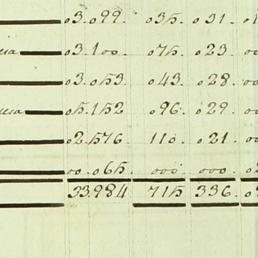 03.099. 035 .031.
03.100. 075 .023.
03.053 .043 .028.
05.152 .096 .029.
02.576 110 .021.
00.065 000 .000
33.984 715 336